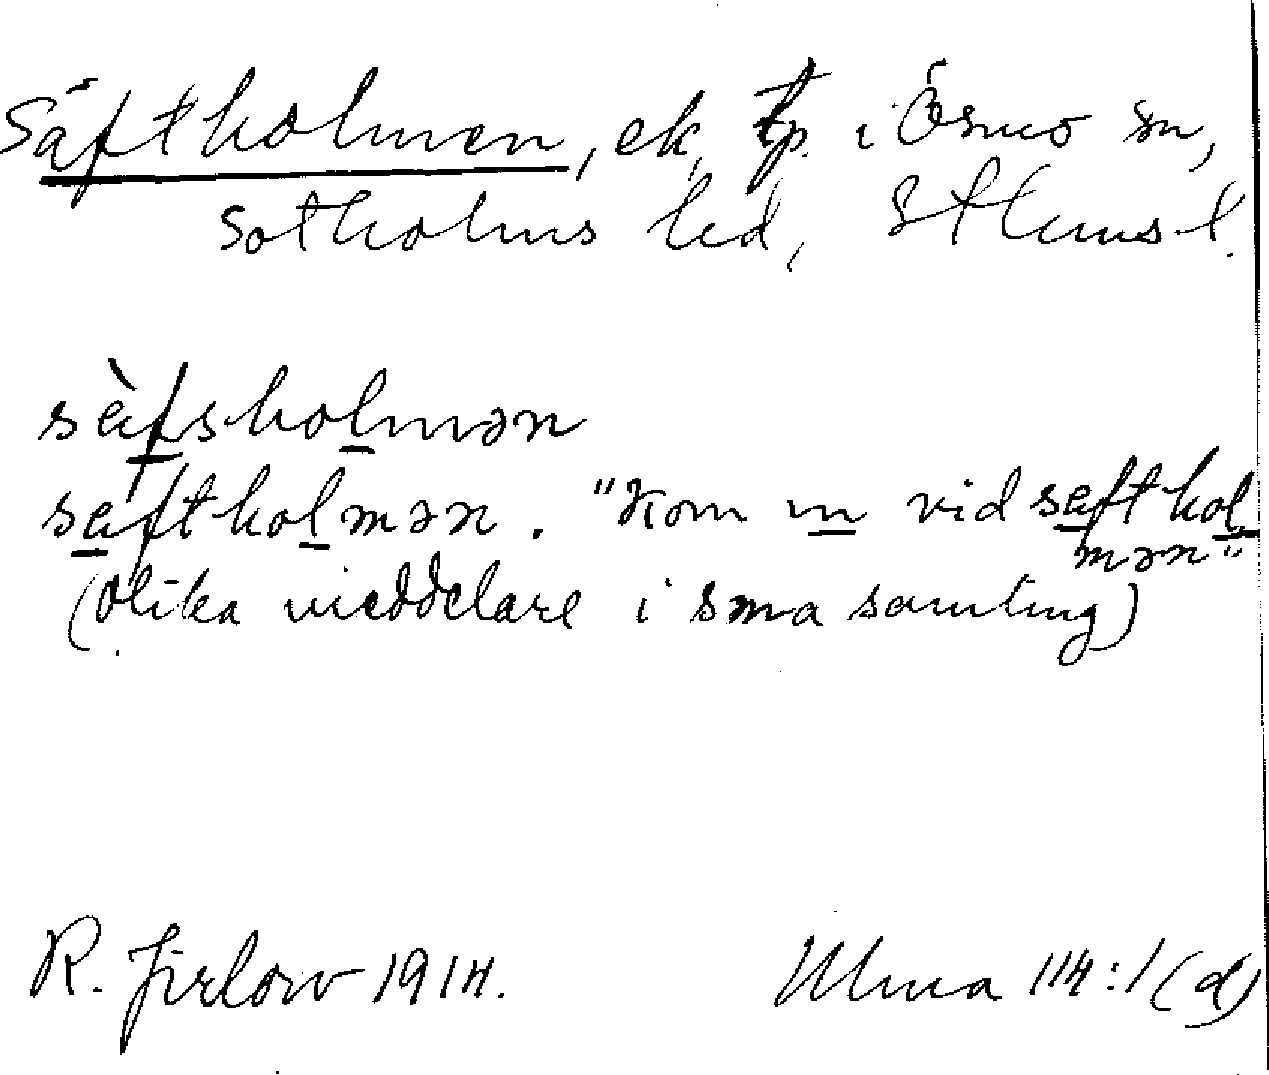 Säftholmen, ek, tp. i Ösmo sn,
Sotholms hd, Sthms l.
sàfsholmən
saftholmən. "Kom in vid safthol
mən"
(Olika meddelare i sma samling)
R. Jirlow 1914.
Ulma 114:1(d)